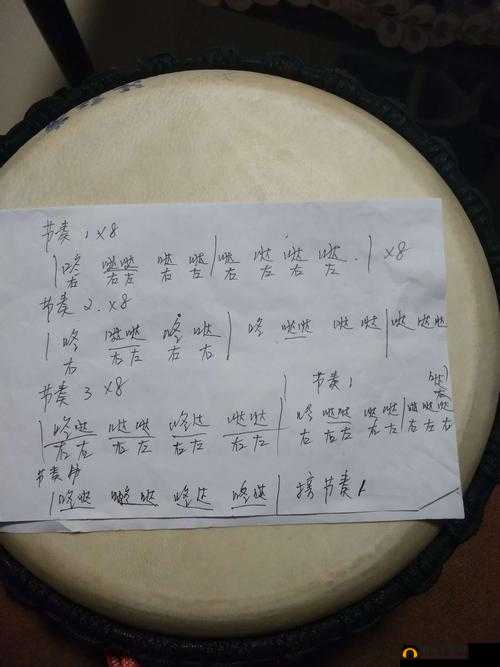 节奏1 ×8
|咚 哒哒 哒 哒|哒 哒 哒 哒.| ×8
右 右左 右 左 右 左 右 左
节奏2.×8
|咚 哒哒 咚 哒| 咚 哒哒 哒哒|哒 哒哒
右 右左 右 右
节奏3 ×8 | 节奏1
|咚哒 哒哒 咚达 哒哒|咚 哒哒 哒哒|哒哒哒
右左 右左 右左 右左 右 右左 右左 右左右
节奏
|咚哒 哒哒 咚达 咚哒|接节奏1